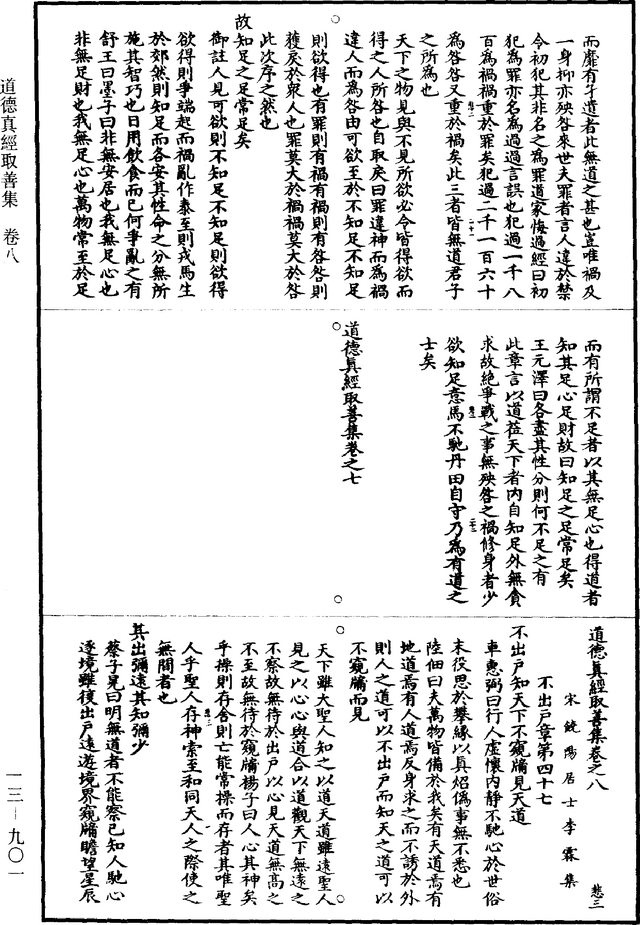 道德真經取善集　卷八
一三—九〇一
而靡有孑遺者此無道之甚也豈唯禍及
一身抑亦殃咎來世夫罪者言人違於禁
令初犯其非名之為罪道家悔過經曰初
犯為罪亦名為過過言誤也犯過一千八
百為禍禍重於罪矣犯過二千一百六十
為咎咎又重於禍矣此三者皆無道君子
之所為也
天下之物見與不見所欲必令皆得欲而
得之人所咎也自取矣曰罪違神而為禍
違人而為咎由可欲至於不知足不知足
則欲得也有罪則有禍有禍則有咎咎則
䕶戾於衆人也罪莫大於禍禍莫大於咎
此次序之然也
故知足之足常足矣
御註人見可欲則不知足不知足則欲得
欲得則爭端起而禍亂作泰至則戎馬生
於郊然則知足而各安其性命之分無所
施其智巧也日用飲食而已何爭亂之有
舒王曰墨子曰非無安居也我無足心也
非無足財也我無足心也萬物常至於足
而有所謂不足者以其無足心也得道者
知其足心足財故曰知足之足常足矣
王元澤曰各盡其性分則何不足之有
此章言以道莅天下者内自知足外無貪
求故絶爭戰之事無殃咎之禍修身者少
欲知足意馬不馳丹田自守乃為有道之
士矣
道德眞經取善集卷之七
道德眞經取善集卷之八　　慙三
宋饒陽居士李霖集
不出戶章第四十七
不出戶知天下不窺牖見天道
車惠弼曰行人虛懷内静不馳心於世俗
末役思於攀緣以真炤僞事無不悉也
陸佃曰夫萬物皆備於我矣有天道焉有
地道焉有人道焉反身求之而不誘於外
則人之道可以不出戶而知天之道可以
不窺牖而見
天下雖大聖人知之以道天道雖遠聖人
見之以心心與道合以道觀天下無遠之
不察故無待於出戶以心見天道無高之
不至故無待於窺牖楊子曰人心其神矣
乎操則存舍則亡能常操而存者其唯聖
人乎聖人存神索至和同天人之際使之
無間者也
其出彌遠其知彌少
蔡子晃曰明無道者不能察己知人馳心
逐境雖復出戶遠遊境界窺牖瞻望星辰